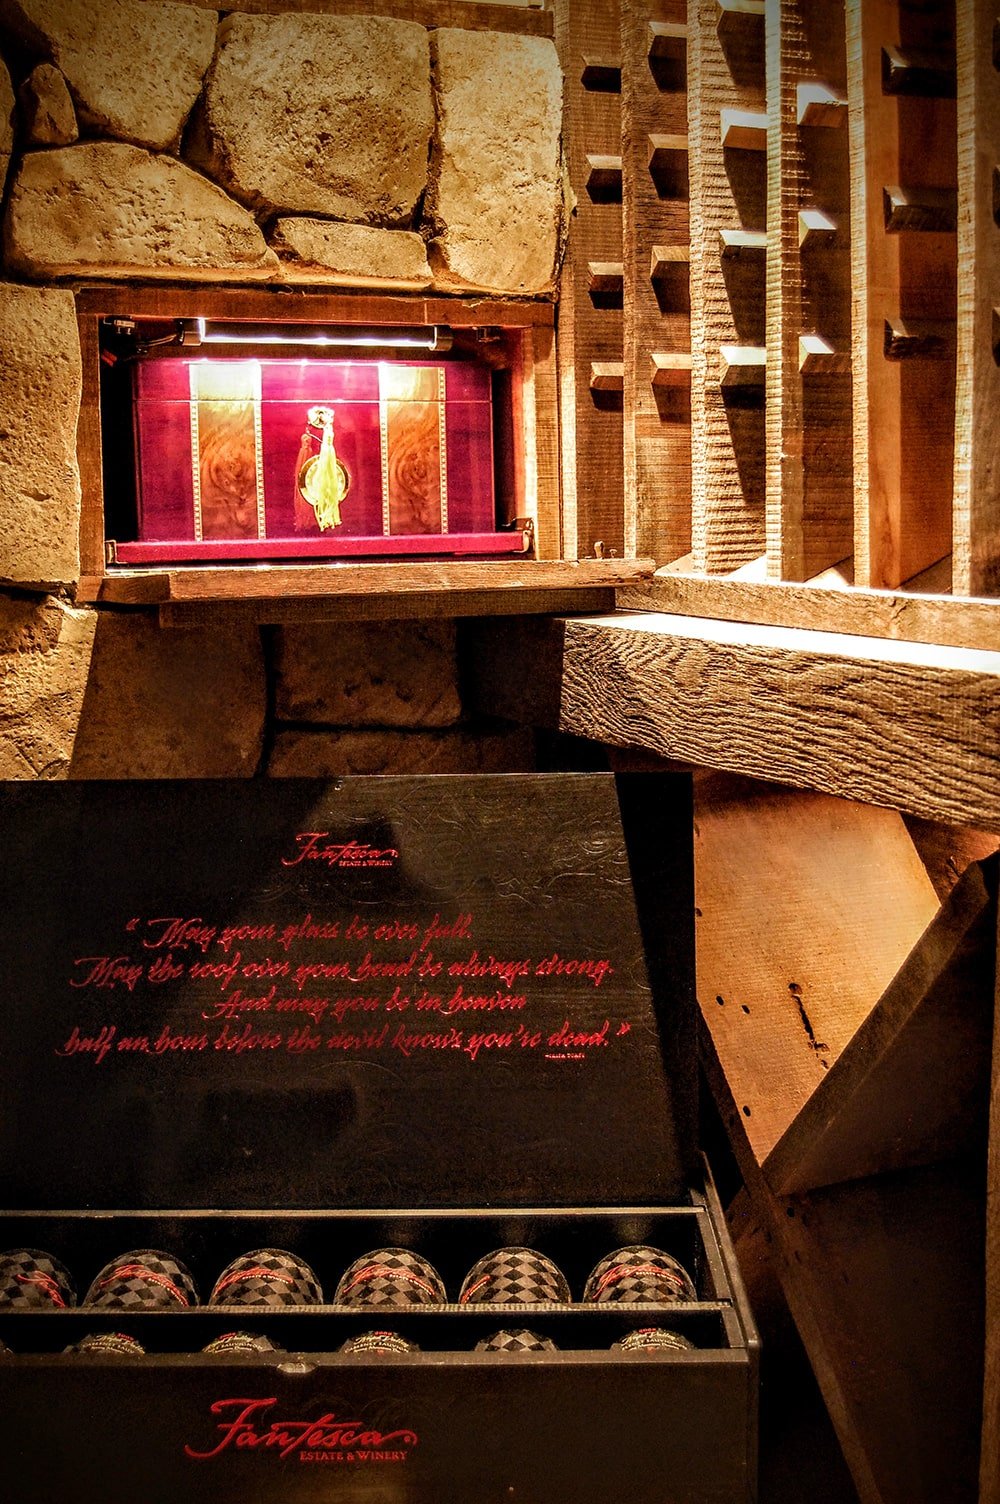 Fantesca
ESTATE & WINERY
“May your glass be ever full.
May the roof over your head be always strong.
And may you be in heaven
half an hour before the devil knows you're dead.”
Fantesca
ESTATE & WINERY